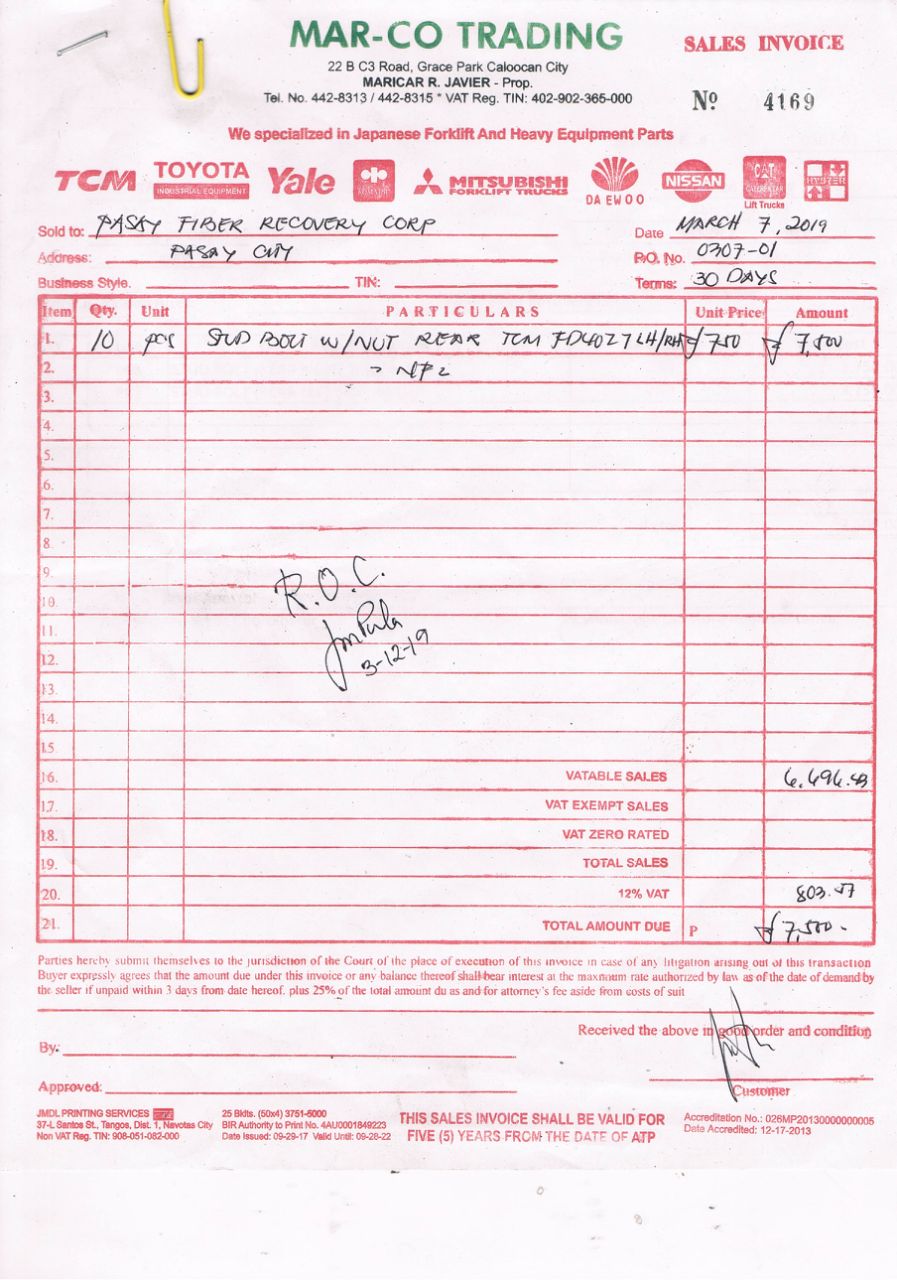 MAR-CO TRADING
SALES INVOICE
22 B C3 Road, Grace Park Caloocan City
MARICAR R. JAVIER - Prop.
Tel. No. 442-8313 / 442-8315 * VAT Reg. TIN: 402-902-365-000
Nº 4169
We specialized in Japanese Forklift And Heavy Equipment Parts
TCM TOYOTA INDUSTRIAL EQUIPMENT Yale KOMATSU MITSUBISHI FORKLIFT TRUCKS DAEWOO NISSAN CAT CATERPILLAR Lift Trucks HYSTER
Sold to: PASAY FIBER RECOVERY CORP Date MARCH 7, 2019
Address: PASAY CITY P.O. No. 0307-01
Business Style. TIN: Terms: 30 DAYS
Item Qty. Unit PARTICULARS Unit Price Amount
1. 10 pcs STUD BOLT W/NUT REAR TCM FD40Z7 LH/RH 750 7,500
2.
3.
4.
5.
6.
7.
8.
9.
10.
R.O.C.
11.
12. 3-12-19
13.
14.
15.
16. VATABLE SALES 6,696.43
17. VAT EXEMPT SALES
18. VAT ZERO RATED
19. TOTAL SALES
20. 12% VAT 803.57
21. TOTAL AMOUNT DUE P 7,500.-
Parties hereby submit themselves to the jurisdiction of the Court of the place of execution of this invoice in case of any litigation arising out of this transaction
Buyer expressly agrees that the amount due under this invoice or any balance thereof shall bear interest at the maximum rate authorized by law as of the date of demand by
the seller if unpaid within 3 days from date hereof. plus 25% of the total amount du as and for attorney's fee aside from costs of suit
Received the above in good order and condition
By:
Approved:
Customer
JMDL PRINTING SERVICES
37-L Santos St., Tangos, Dist. 1, Navotas City
Non VAT Reg. TIN: 908-051-082-000
25 Bklts. (50x4) 3751-5000
BIR Authority to Print No. 4AU0001849223
Date Issued: 09-29-17 Valid Until: 09-28-22
THIS SALES INVOICE SHALL BE VALID FOR
FIVE (5) YEARS FROM THE DATE OF ATP
Accreditation No.: 026MP20130000000005
Date Accredited: 12-17-2013